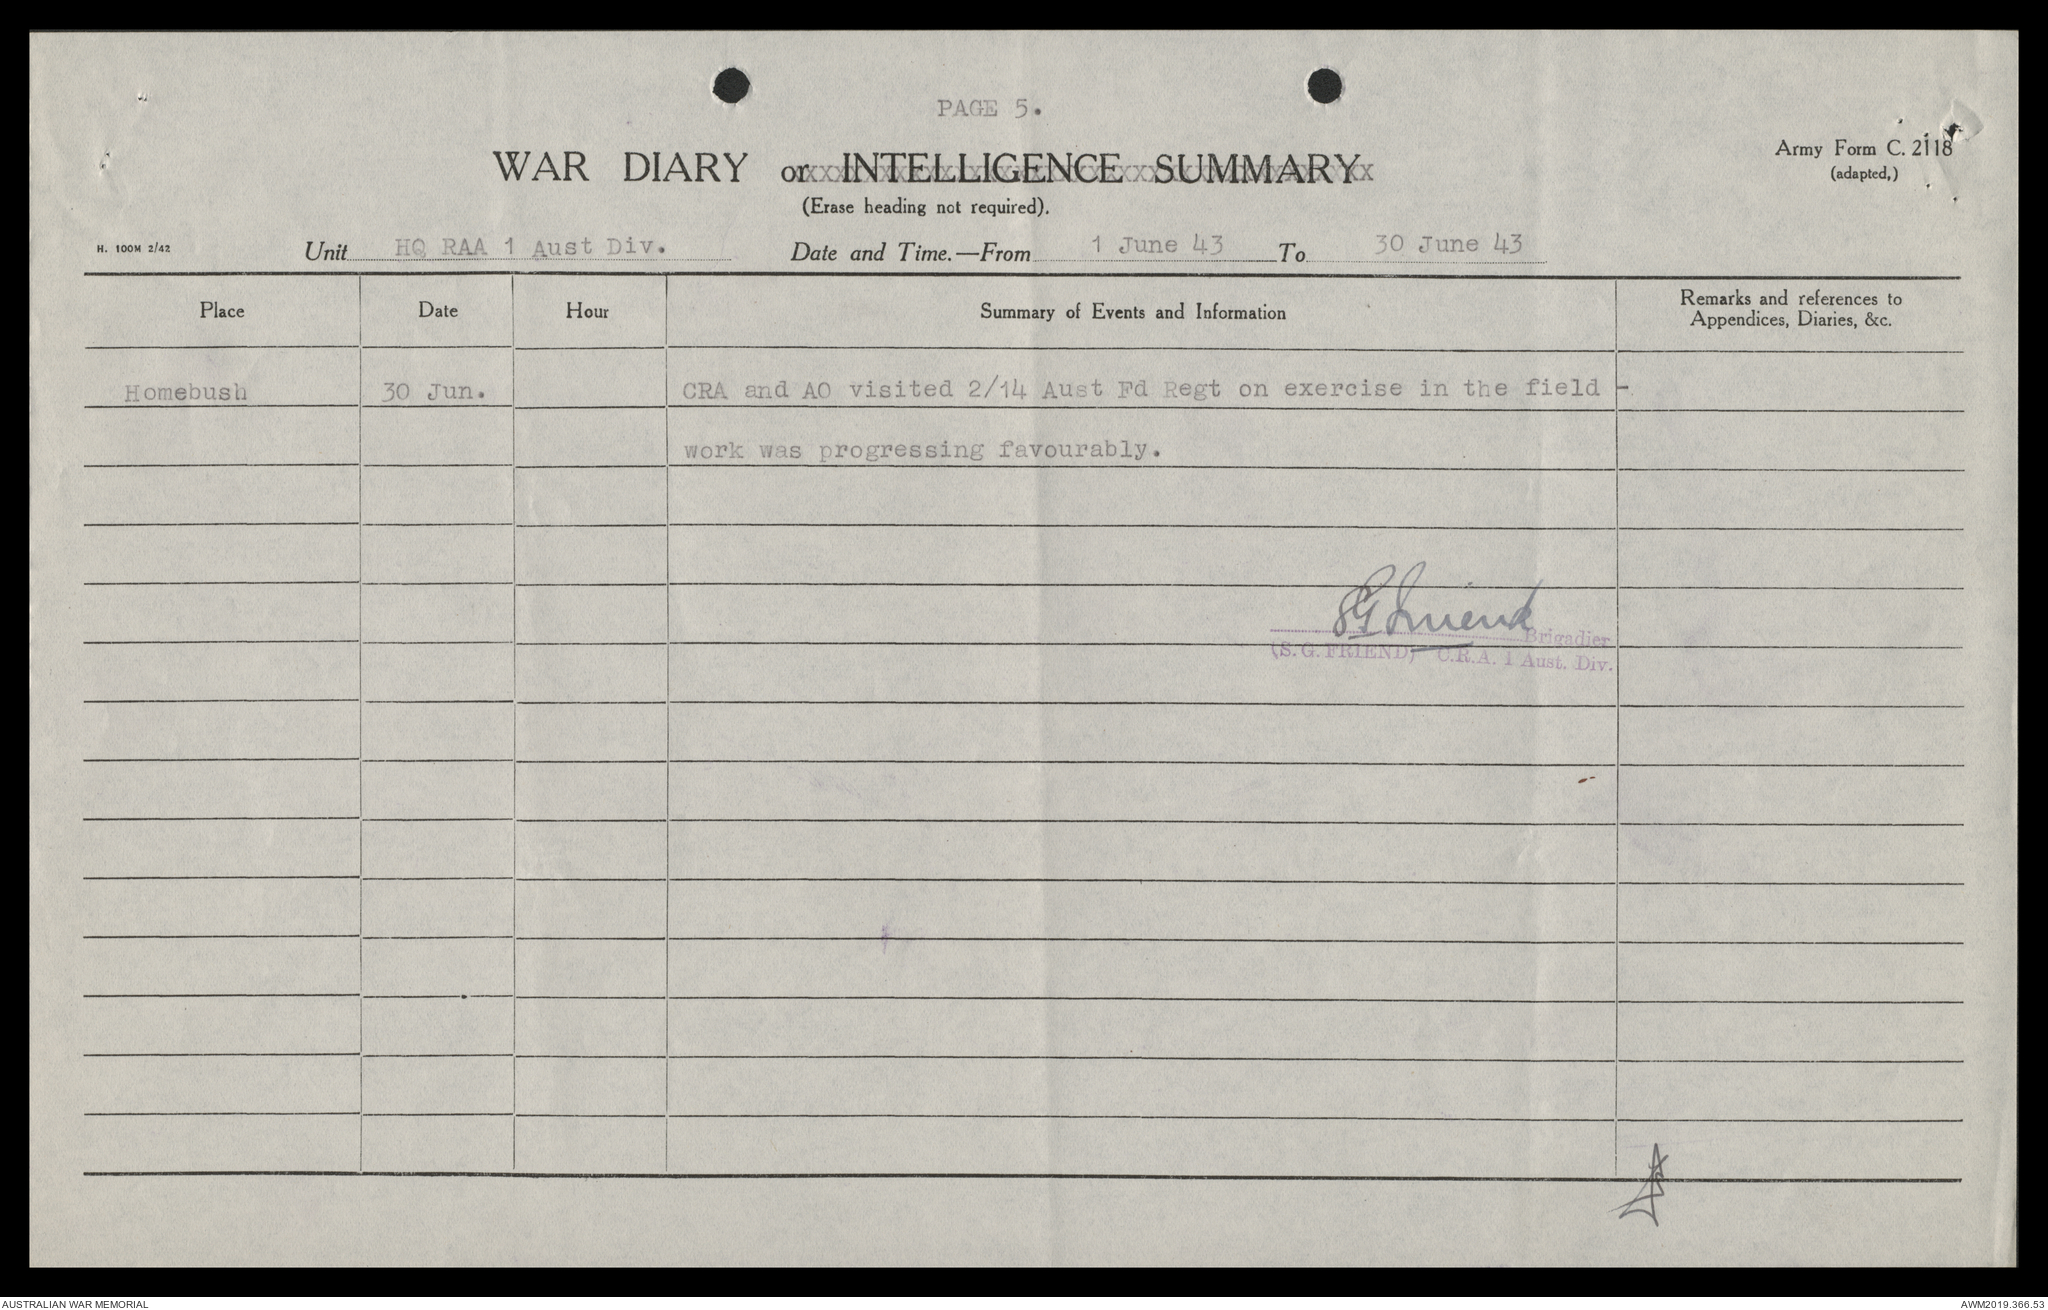 PAGE 5.
Army Form C. 2118
(adapted,)
WAR DIARY or INTELLIGENCE SUMMARY
(Erase heading not required).
H. 100M 2/42
Unit HQ RAA 1 Aust Div. Date and Time.—From 1 June 43 To 30 June 43
Place Date Hour Summary of Events and Information Remarks and references to Appendices, Diaries, &c.
Homebush 30 Jun. CRA and AO visited 2/14 Aust Fd Regt on exercise in the field -
work was progressing favourably.
SG Friend
Brigadier
(S. G. FRIEND) C.R.A. 1 Aust. Div.
AUSTRALIAN WAR MEMORIAL
AWM2019.366.53